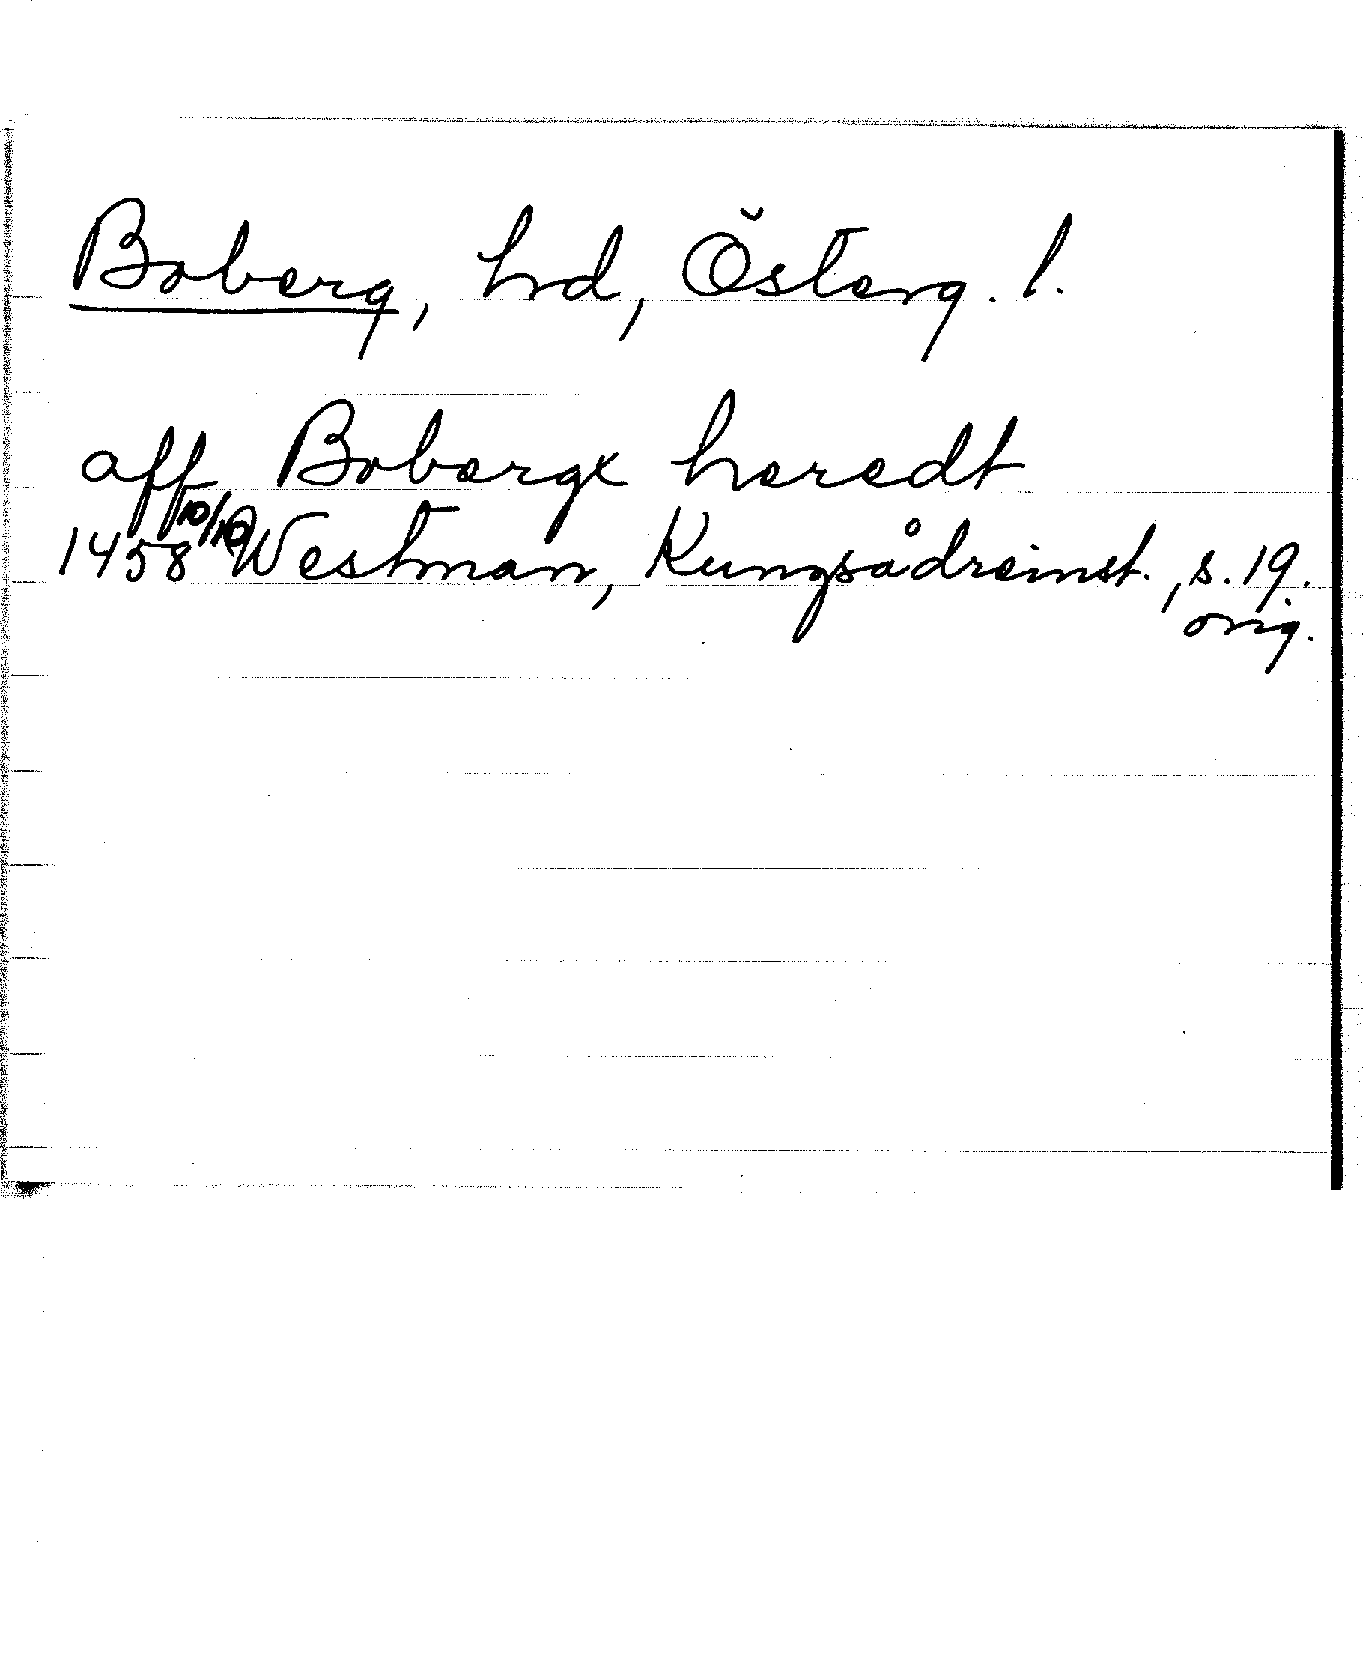 Boberg, hd, Österg. l.
aff Bobergx heredt
1458 10/10 Westman, Kungsådreinst., s. 19.
orig.